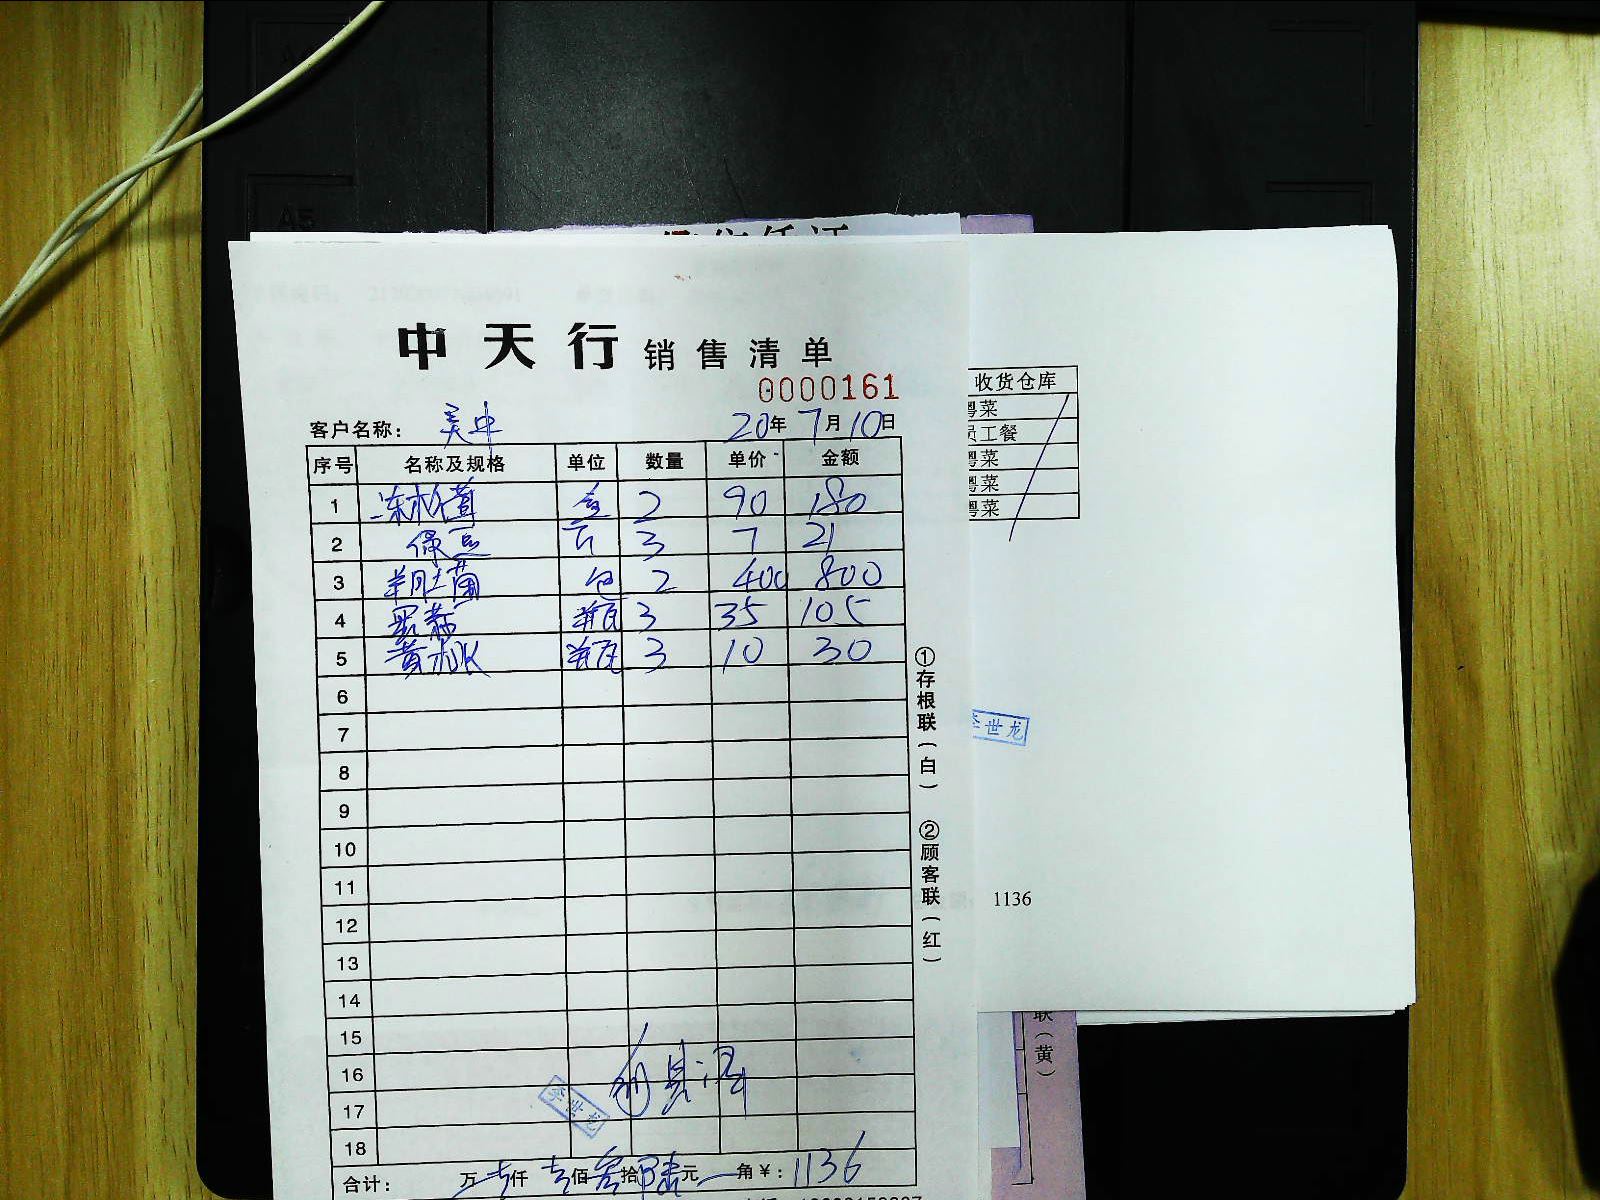 中天行 销售清单
0000161
客户名称： 吴中 20年7月10日
序号 名称及规格 单位 数量 单价 金额
1 冻松茸 盒 2 90 180
2 绿豆 斤 3 7 21
3 羊肚菌 包 2 400 800
4 黑蒜 瓶 3 35 105
5 黄冰 瓶 3 10 30
6
7
8
9
10
11
12
13
14
15
16
17
18
李世龙
合计： 万 壹仟 壹佰 叁拾 陆元 角 ￥：1136
①存根联(白) ②顾客联(红)
收货仓库
粤菜
员工餐
粤菜
粤菜
粤菜
李世龙
1136
联(黄)
A5